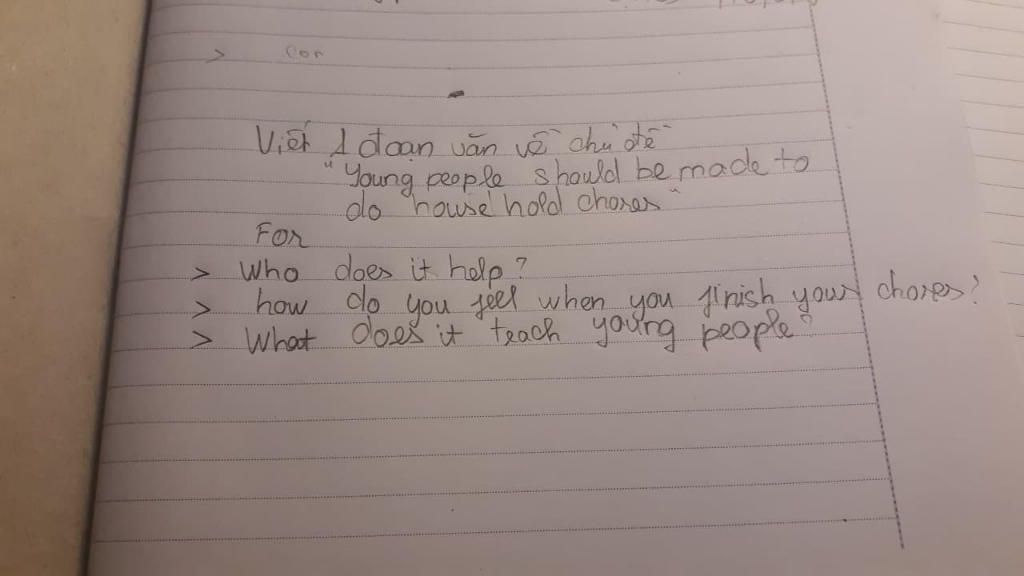 > Con
Viết 1 đoạn văn về chủ đề
"Young people should be made to
do house hold chores"
For
> Who does it help?
> how do you feel when you finish your chores?
> What does it teach young people?